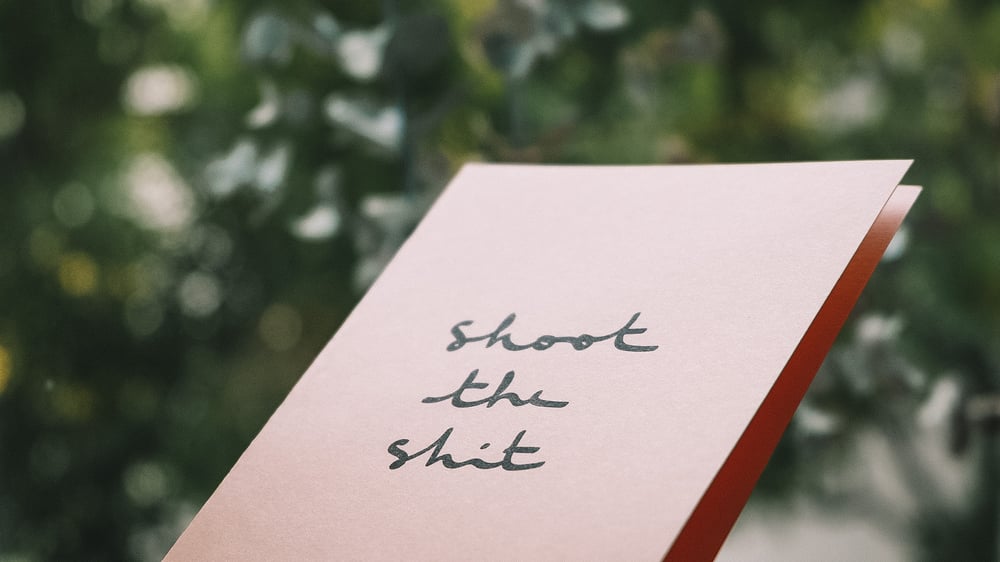 shoot
the
shit